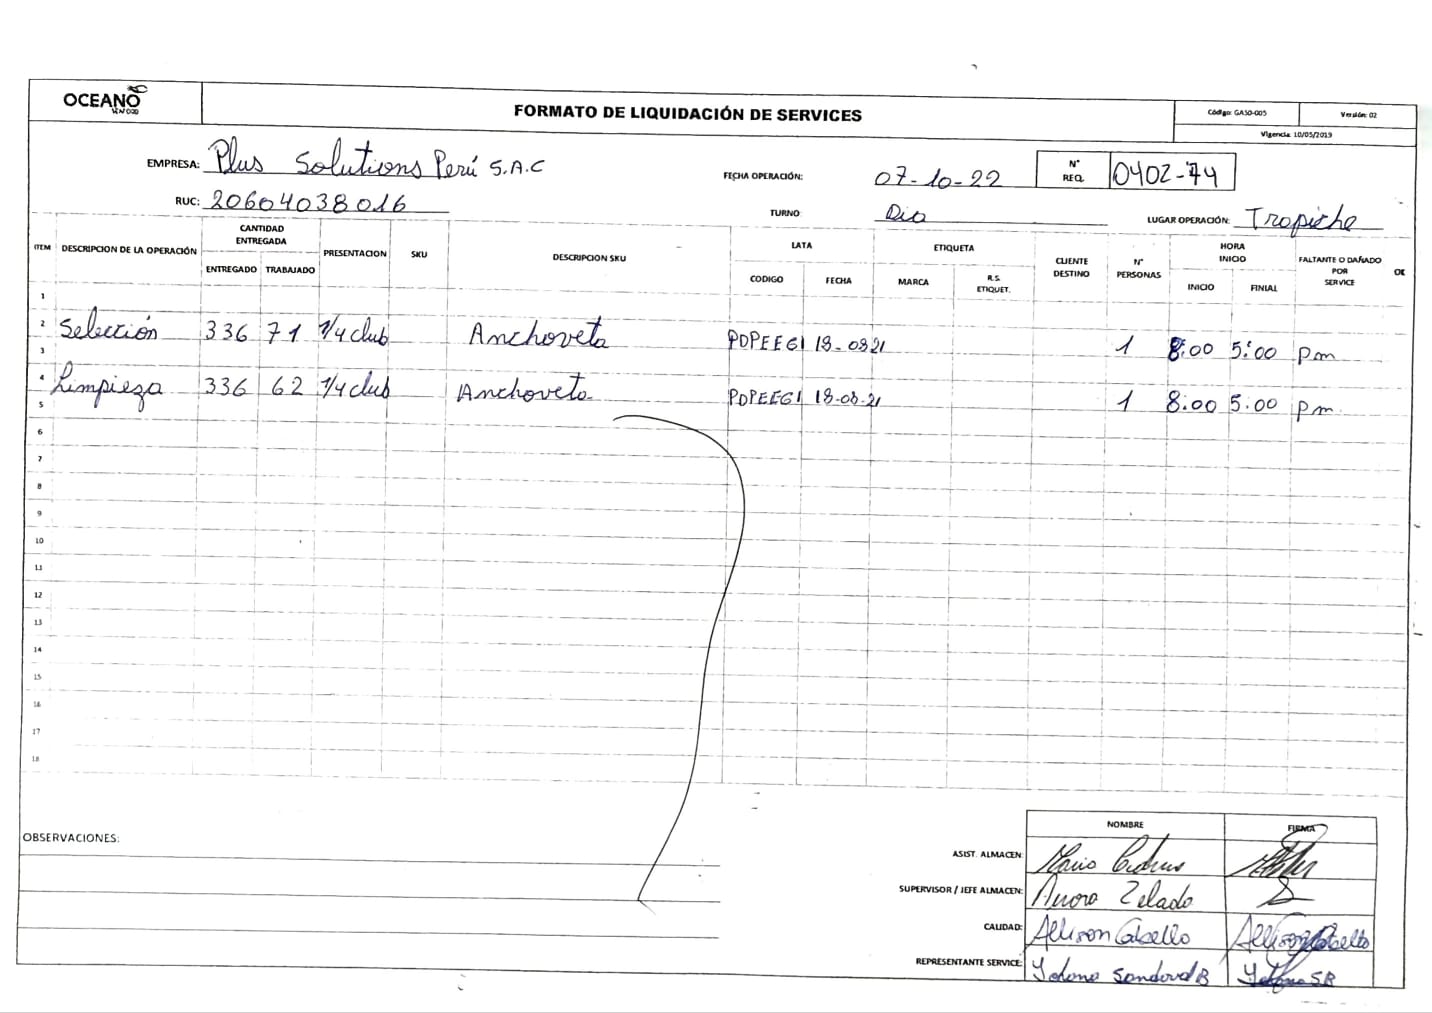 OCEANO
FORMATO DE LIQUIDACIÓN DE SERVICES
Código: GA50-005
Versión: 02
Vigencia: 10/05/2019
EMPRESA: Plus Solutions Perú S.A.C
FECHA OPERACIÓN: 07-10-22
N° REQ. 0402-74
RUC: 20604038016
TURNO: Dia
LUGAR OPERACIÓN: Tropiche
ITEM DESCRIPCION DE LA OPERACIÓN CANTIDAD ENTREGADA PRESENTACION SKU DESCRIPCION SKU LATA ETIQUETA CLIENTE DESTINO N° PERSONAS HORA INICIO FALTANTE O DAÑADO POR SERVICE
ENTREGADO TRABAJADO CODIGO FECHA MARCA R.S. ETIQUET. INICIO FINIAL
1
2 Selección 336 71 1/4 club Anchoveta PDPEEG1 18-08-21 1 8:00 5:00 pm
3
4 Limpieza 336 62 1/4 club Anchoveta PDPEEG1 18-08-21 1 8:00 5:00 pm
5
6
7
8
9
10
11
12
13
14
15
16
17
18
OBSERVACIONES:
NOMBRE FIRMA
ASIST. ALMACEN: Mario
SUPERVISOR / JEFE ALMACEN: Aurora Zelada
CALIDAD: Allison Cabello Allison Cabello
REPRESENTANTE SERVICE: Sandoval B